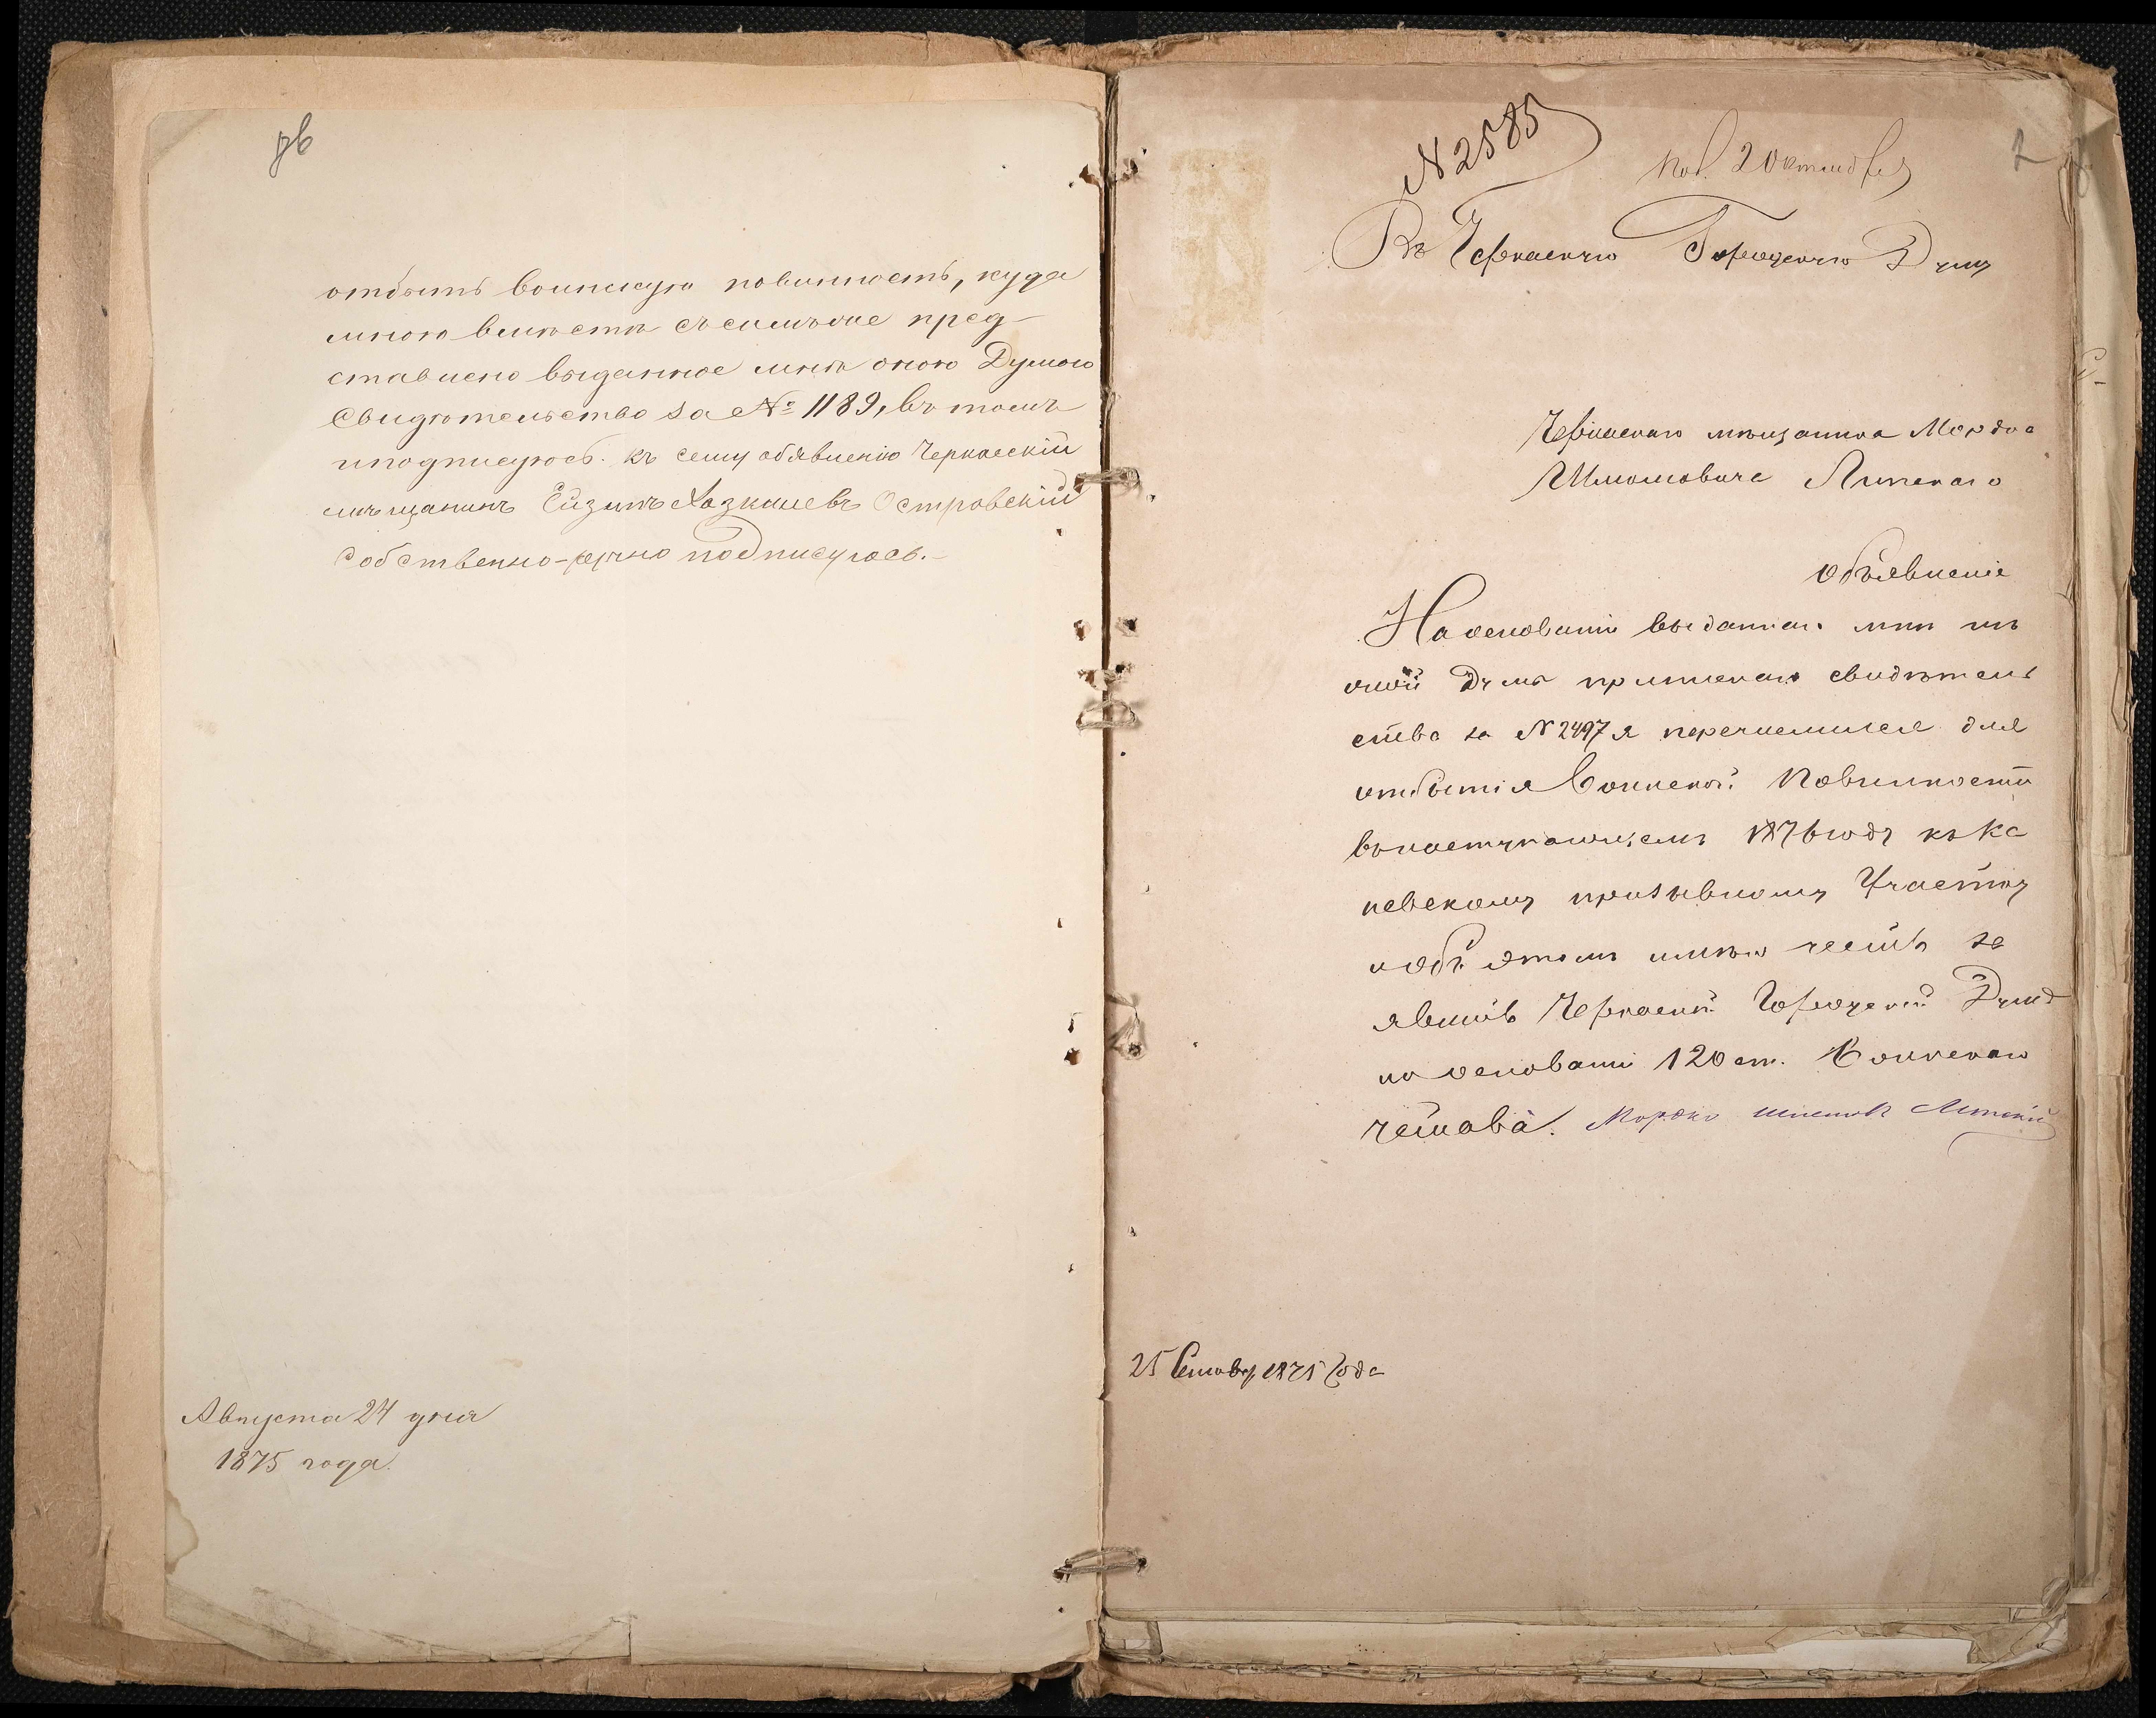 отбыть воинскую повинность, куда
мною вместе съ симъ же пред-
ставлено выданное мнѣ оною Думою
Свидѣтельство за № 1189, въ томъ
и подписуюсь. къ сему объявленію Черкасскій
мѣщанинъ Ейзикъ Хазкилевъ Островскій
собственно-ручно подписуюсь.-
Августа 24 дня
1875 года.
№ 2585
2
Пол. 2 октября
Въ Черкаскую Городскую Думу
Черкаскаго мѣщанина Мордка
Шмулевича Липскаго
объявленіе
На основаніи выданнаго мнѣ изъ
оной Думы свидѣтель
ства за № 2497 я перечислился для
отбытія Воинской Повинности
въ наступающемъ 1876 году къ Ка
невскому призывному Участку
и объ этомъ имѣю честь за
явить Черкаской Городской Думѣ
на основаніи 120 ст. Воинскаго
устава. Мордко Липскій
25 Сентября 1875 года